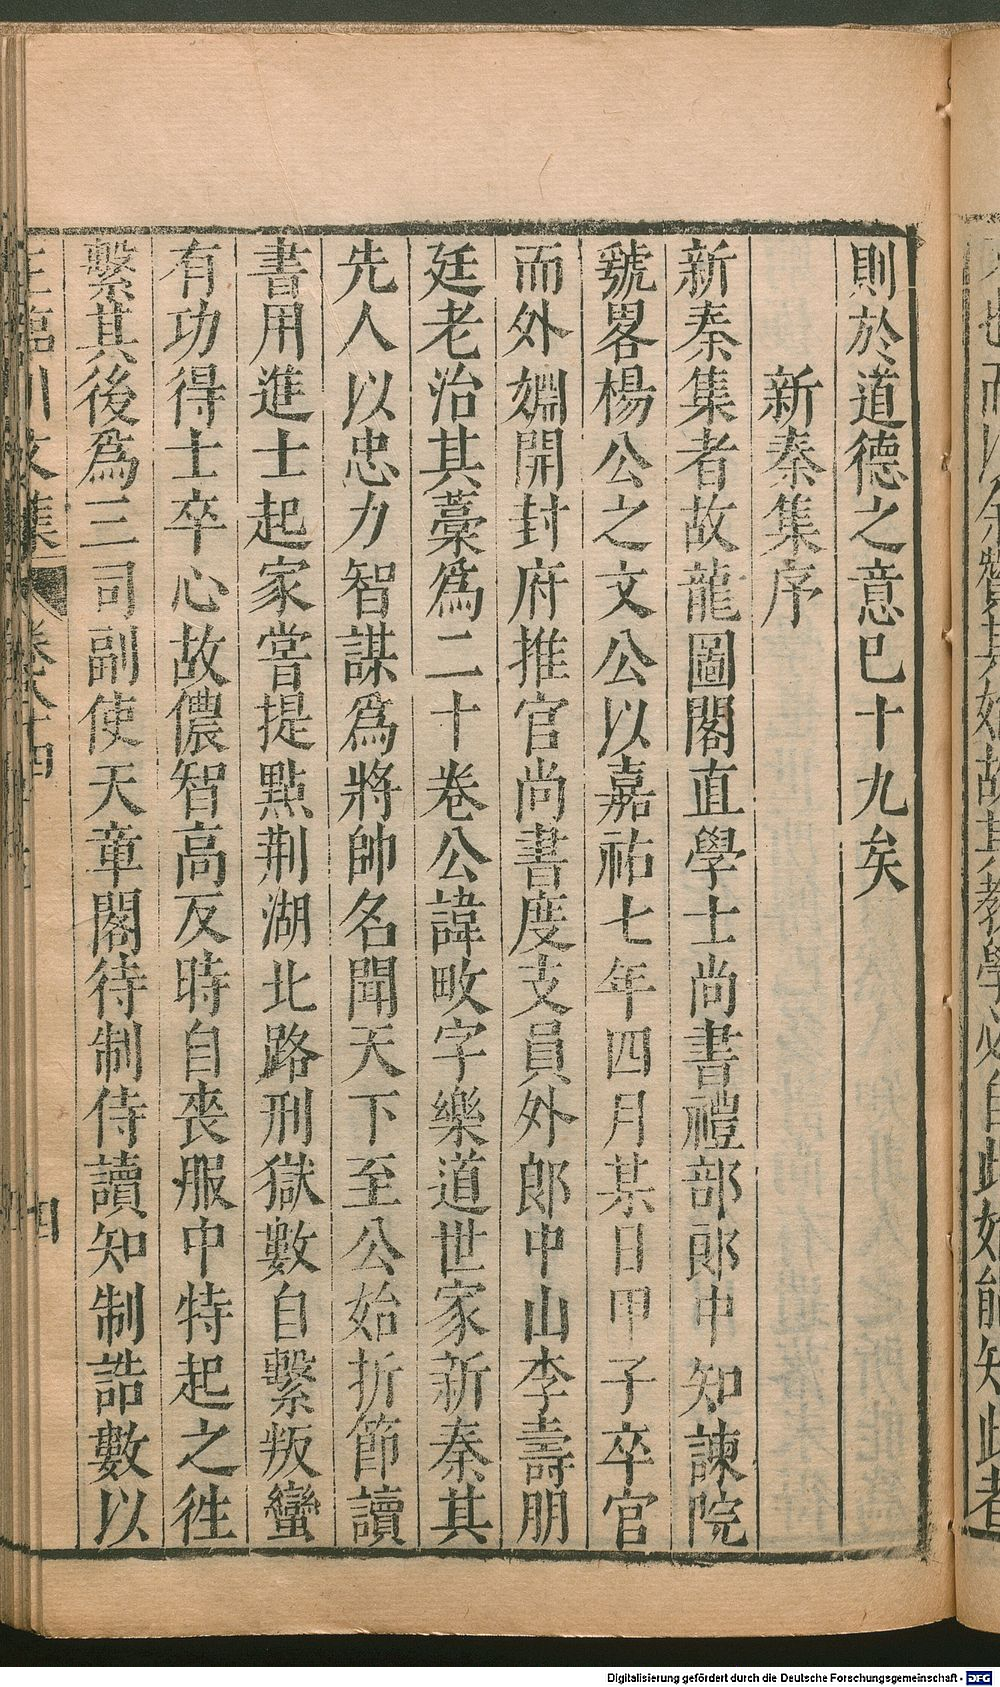 則於道德之意已十九矣
新秦集序
新秦集者故龍圖閣直學士尚書禮部郎中知諫院
虢畧楊公之文公以嘉祐七年四月某日甲子卒官
而外婣開封府推官尚書度支員外郎中山李壽朋
廷老治其藁爲二十卷公諱畋字樂道世家新秦其
先人以忠力智謀爲將帥名聞天下至公始折節讀
書用進士起家嘗提點荆湖北路刑獄數自繫叛蠻
有功得士卒心故儂智高反時自丧服中特起之徃
繫其後爲三司副使天章閣待制侍讀知制誥數以
王臨川文集 卷八十四 四
Digitalisierung gefördert durch die Deutsche Forschungsgemeinschaft - DFG